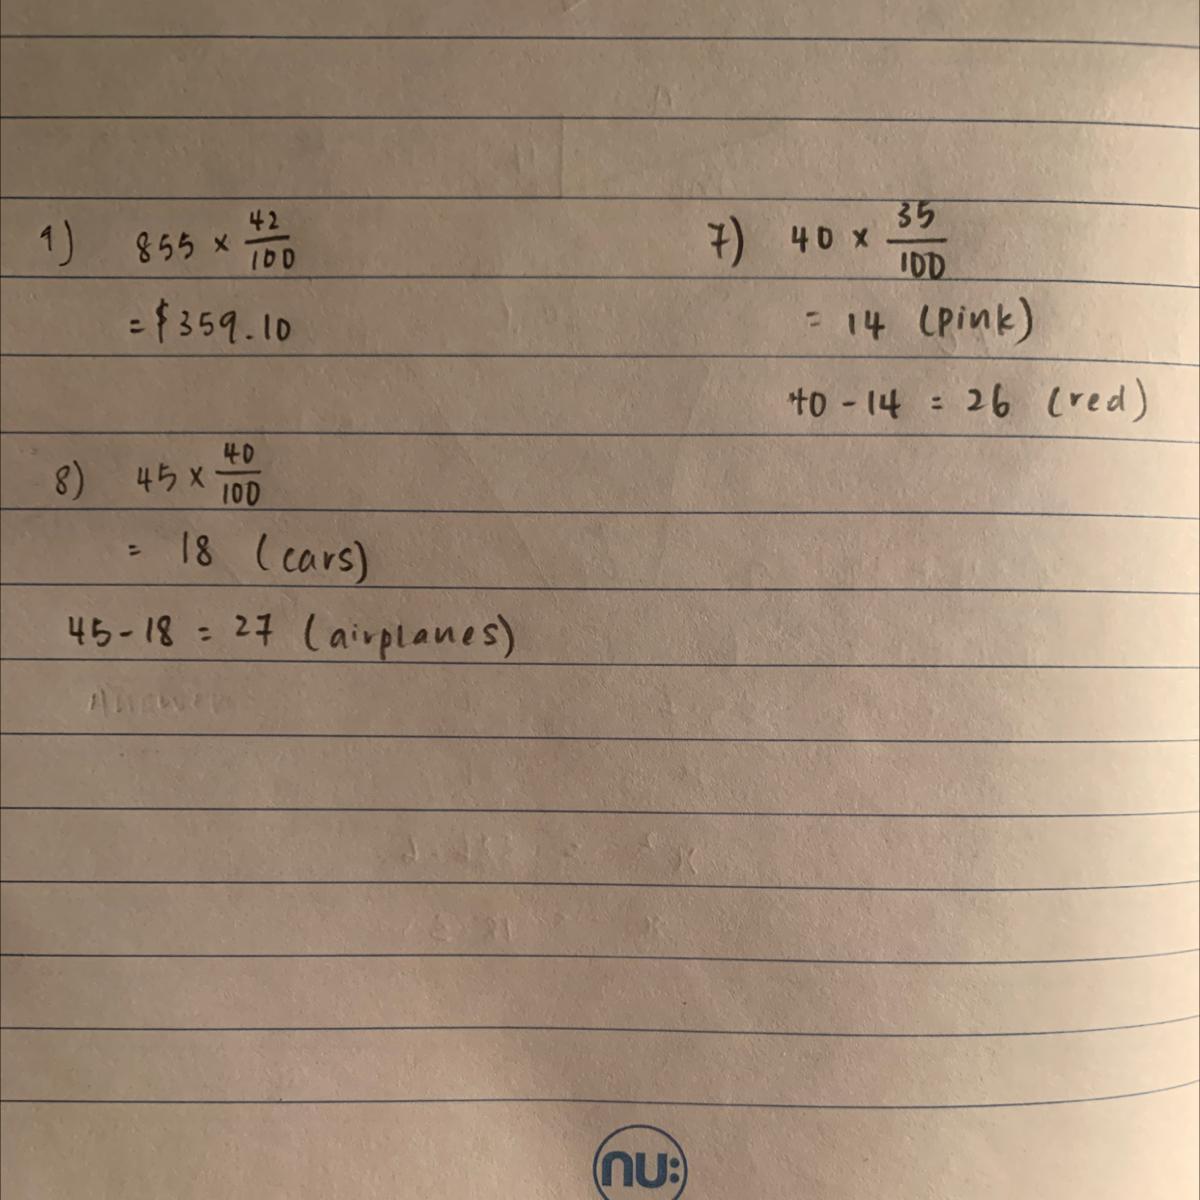 9) 855 × 42/100
= $359.10
8) 45 × 40/100
= 18 (cars)
45 - 18 = 27 (airplanes)
7) 40 × 35/100
= 14 (pink)
40 - 14 = 26 (red)
Answer
nu: